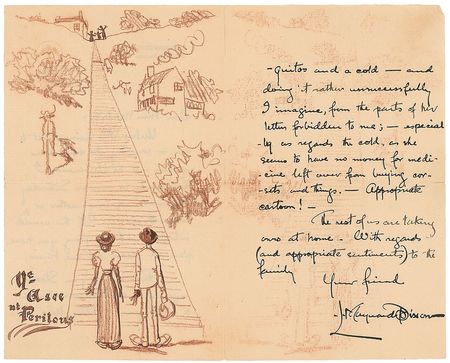 Ye
Asce
nt
Perilous
- quitos and a cold — and
doing it rather unsuccessfully
I imagine, from the parts of her
letter forbidden to me; — especial
ly as regards the cold, as she
seems to have no money for medi-
cine left over from buying cor-
sets and things. — Appropriate
cartoon! —
The rest of us are taking
ours at home. — With regards
(and appropriate sentiments) to the
family
Your friend
L. Maynard Dixon —